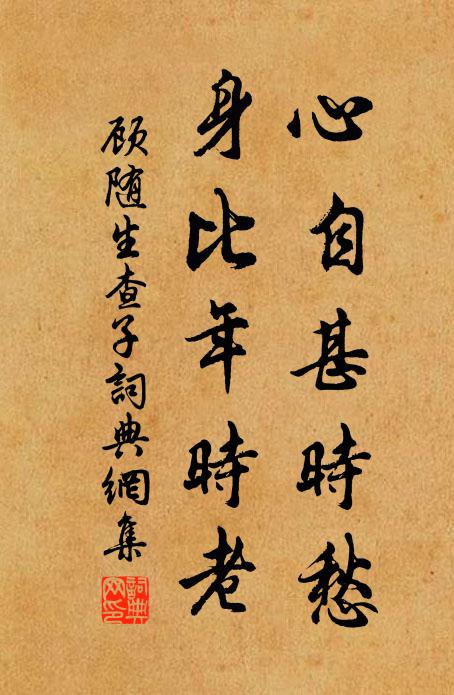 心自甚時愁
身比年時老
顾随生查子詞典網集
詞典
网印